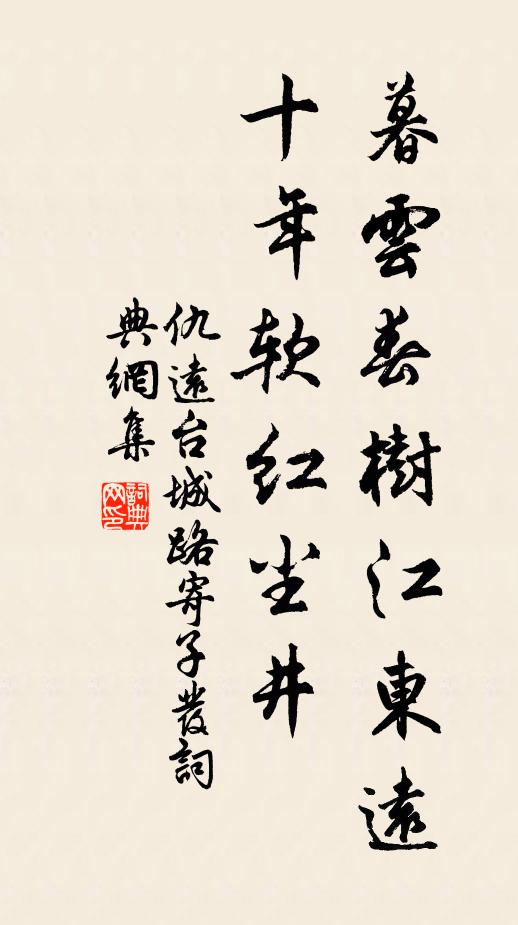 暮雲春樹江東遠
十年軟紅尘井
仇遠台城路寄子發詞
典網集
詞典網印